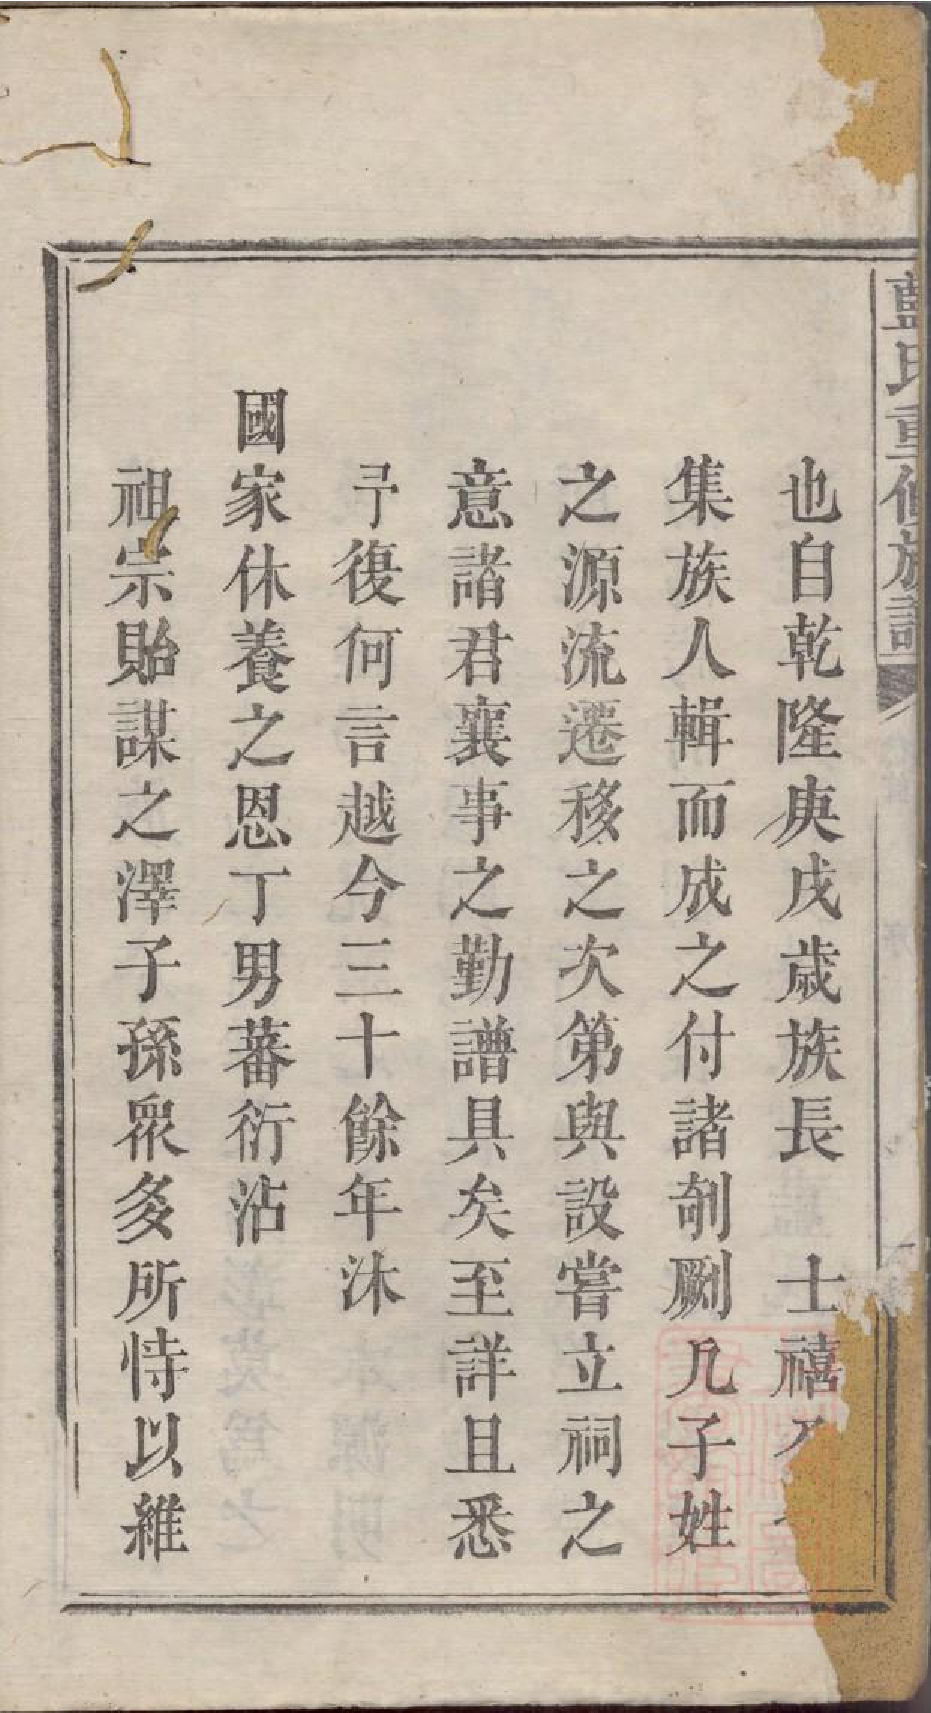 藍氏重修族譜
也自乾隆庚戌歲族長　士禧
集族人輯而成之付諸剞劂凡子姓
之源流遷移之次第與設嘗立祠之
意諸君襄事之勤譜具矣至詳且悉
予復何言越今三十餘年沐
國家休養之恩丁男蕃衍沾
祖宗貽謀之澤子孫眾多所恃以維